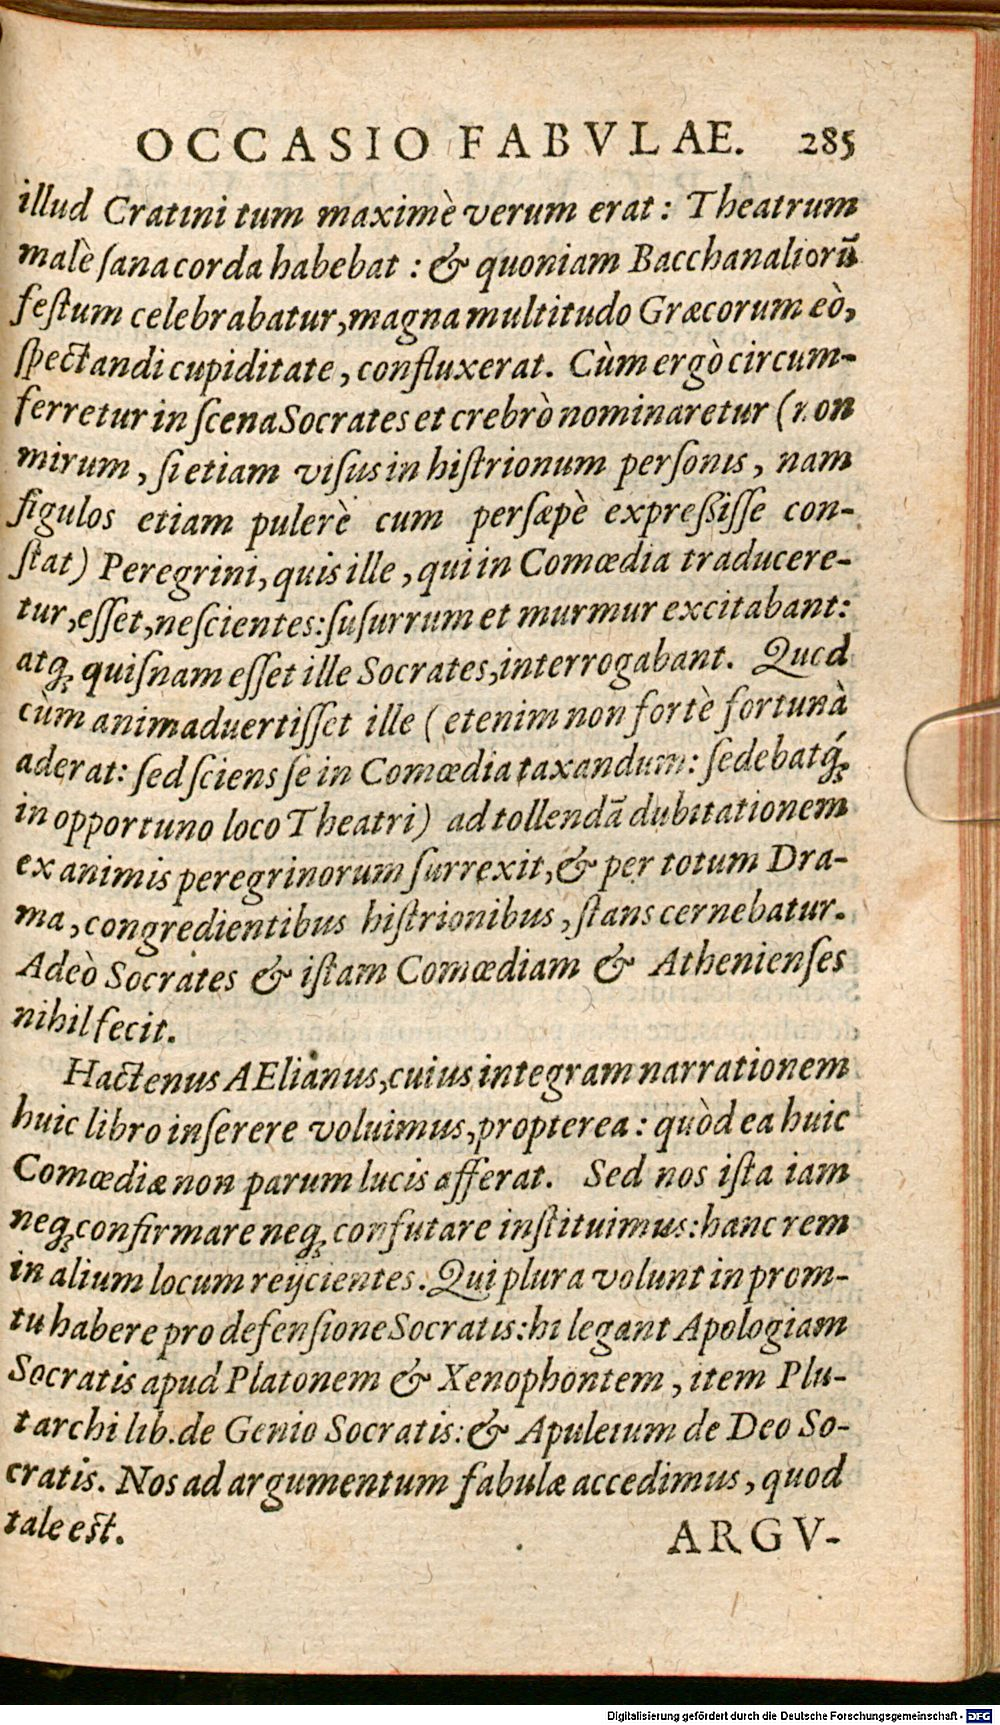 OCCASIO FABVLAE. 285
illud Cratini tum maximè verum erat: Theatrum
malè ſana corda habebat: & quoniam Bacchanaliorū
feſtum celebrabatur, magna multitudo Græcorum eò,
ſpectandi cupiditate, confluxerat. Cùm ergò circum-
ferretur in ſcena Socrates et crebrò nominaretur (non
mirum, ſi etiam viſus in hiſtrionum perſonis, nam
figulos etiam pulerè cum perſæpè expreſſiſſe con-
ſtat) Peregrini, quis ille, qui in Comœdia traducere-
tur, eſſet, neſcientes: ſuſurrum et murmur excitabant:
atq; quiſnam eſſet ille Socrates, interrogabant. Quod
cùm animaduertiſſet ille (etenim non fortè fortunà
aderat: ſed ſciens ſe in Comœdia taxandum: ſedebatq́;
in opportuno loco Theatri) ad tollendā dubitationem
ex animis peregrinorum ſurrexit, & per totum Dra-
ma, congredientibus hiſtrionibus, ſtans cernebatur.
Adeò Socrates & iſtam Comœdiam & Athenienſes
nihil fecit.
Hactenus AElianus, cuius integram narrationem
huic libro inſerere voluimus, propterea: quòd ea huic
Comœdiæ non parum lucis afferat. Sed nos iſta iam
neq; confirmare neq; confutare inſtituimus: hanc rem
in alium locum reijcientes. Qui plura volunt in prom-
tu habere pro defenſione Socratis: hi legant Apologiam
Socratis apud Platonem & Xenophontem, item Plu-
tarchi lib. de Genio Socratis: & Apuleium de Deo So-
cratis. Nos ad argumentum fabulæ accedimus, quod
tale eſt.
ARGV-
Digitalisierung gefördert durch die Deutsche Forschungsgemeinschaft - DFG